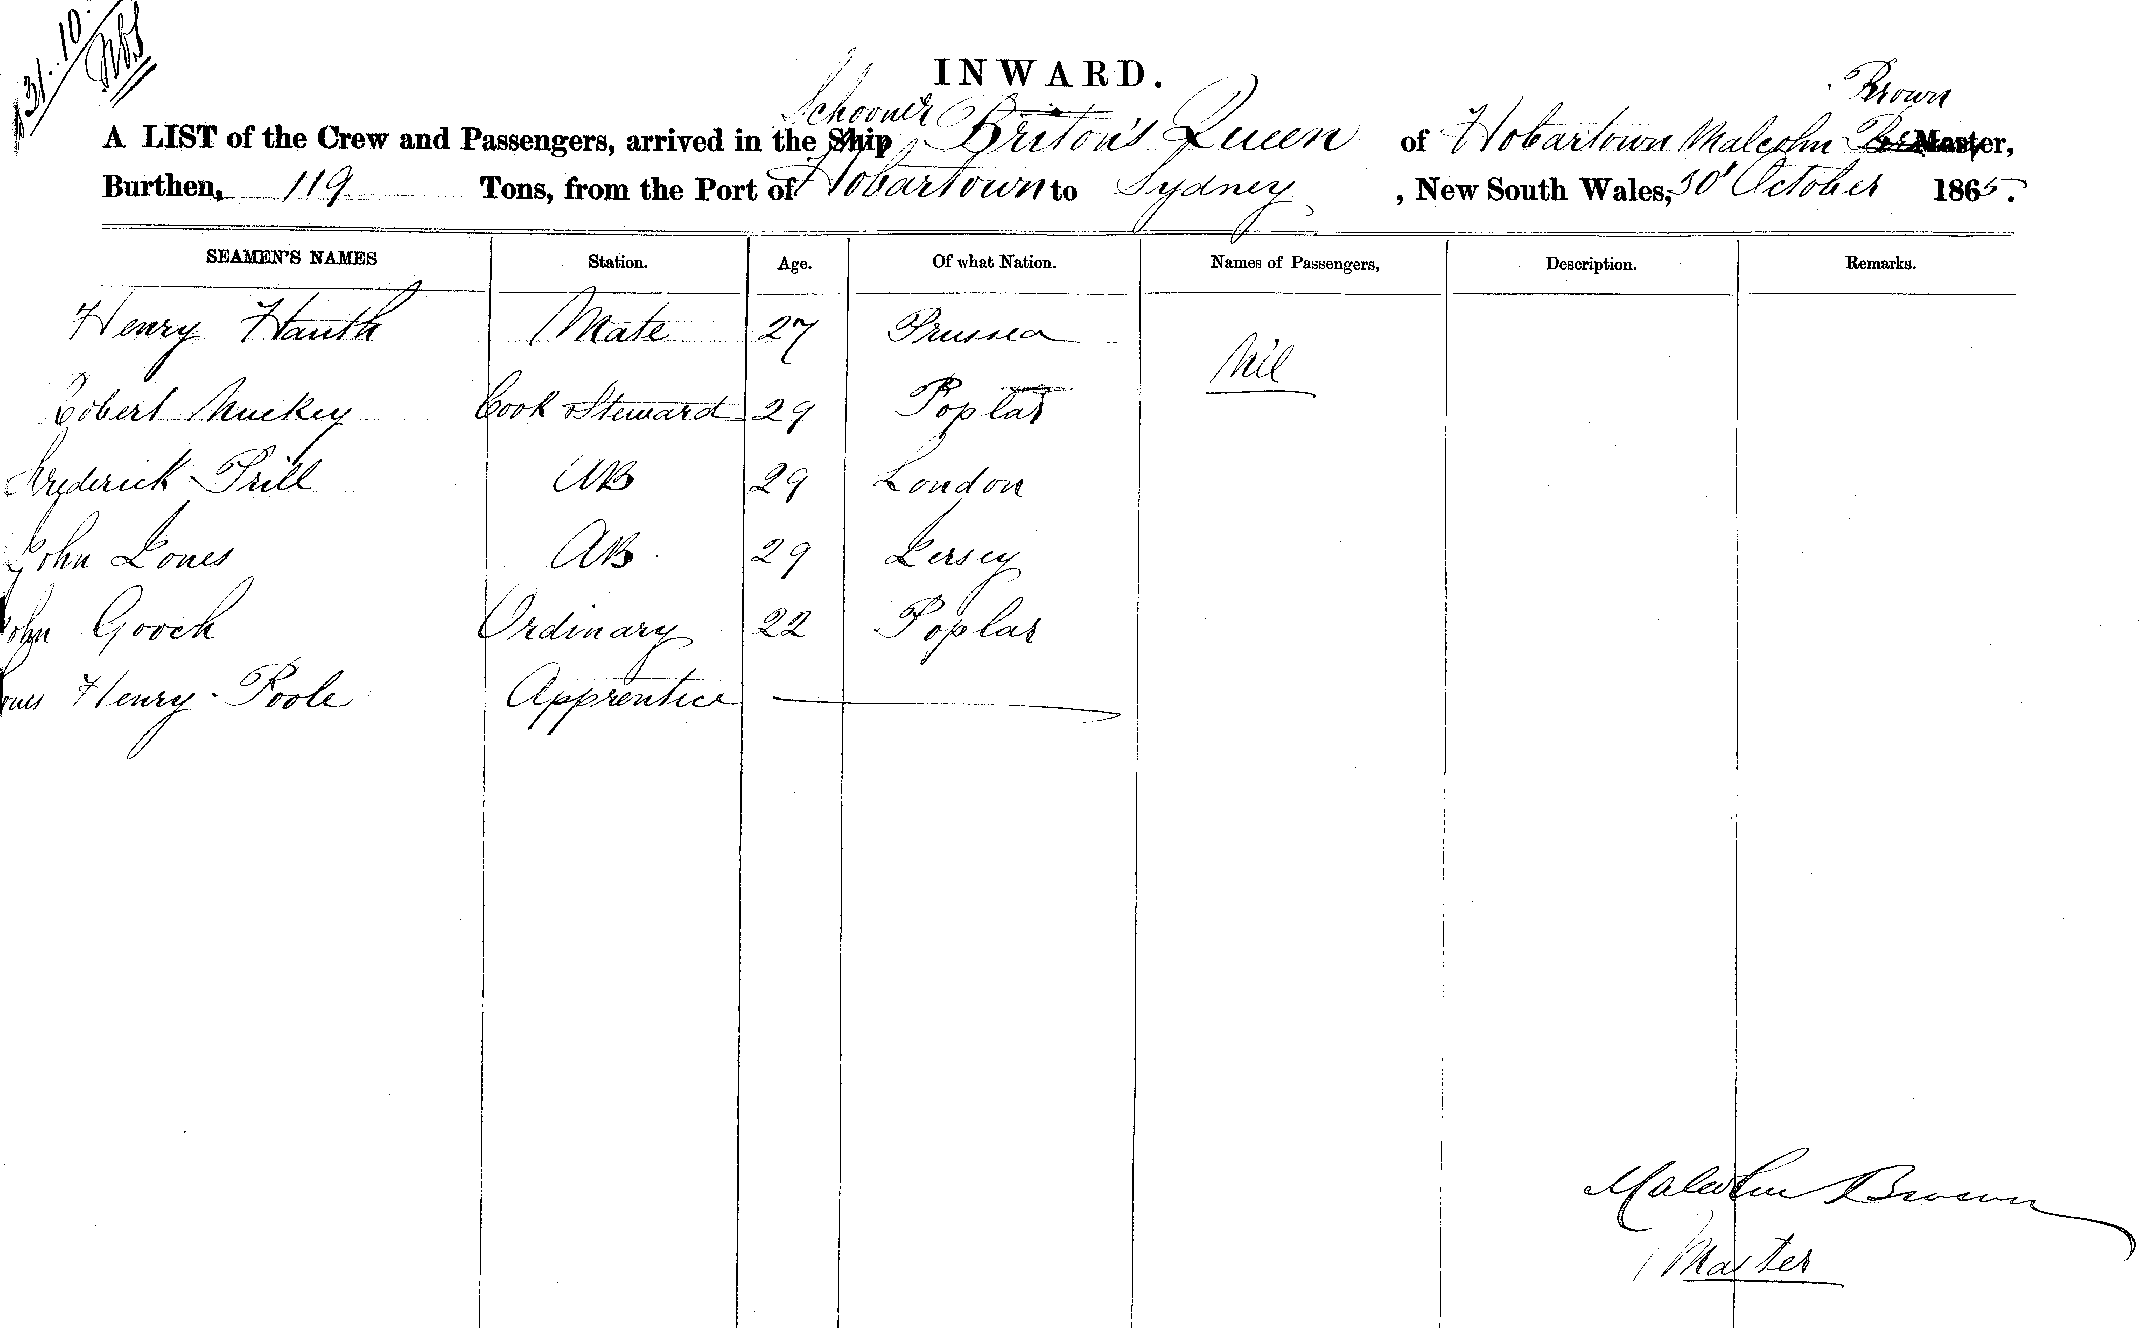 31.10.
INWARD.
Schooner Brown
A LIST of the Crew and Passengers, arrived in the Ship Briton's Queen of Hobartown Malcolm Master,
Burthen, 119 Tons, from the Port of Hobartown to Sydney, New South Wales, 30th October 1865.
SEAMEN'S NAMES Station. Age. Of what Nation. Names of Passengers, Description. Remarks.
Henry Hauth Mate 27 Prussia
Nil
Robert Muckey Cook & Steward 29 Poplar
Frederick Prill AB 29 London
John Jones AB 29 Jersey
John Gooch Ordinary 22 Poplar
Henry Poole Apprentice
Malcolm Brown
Master